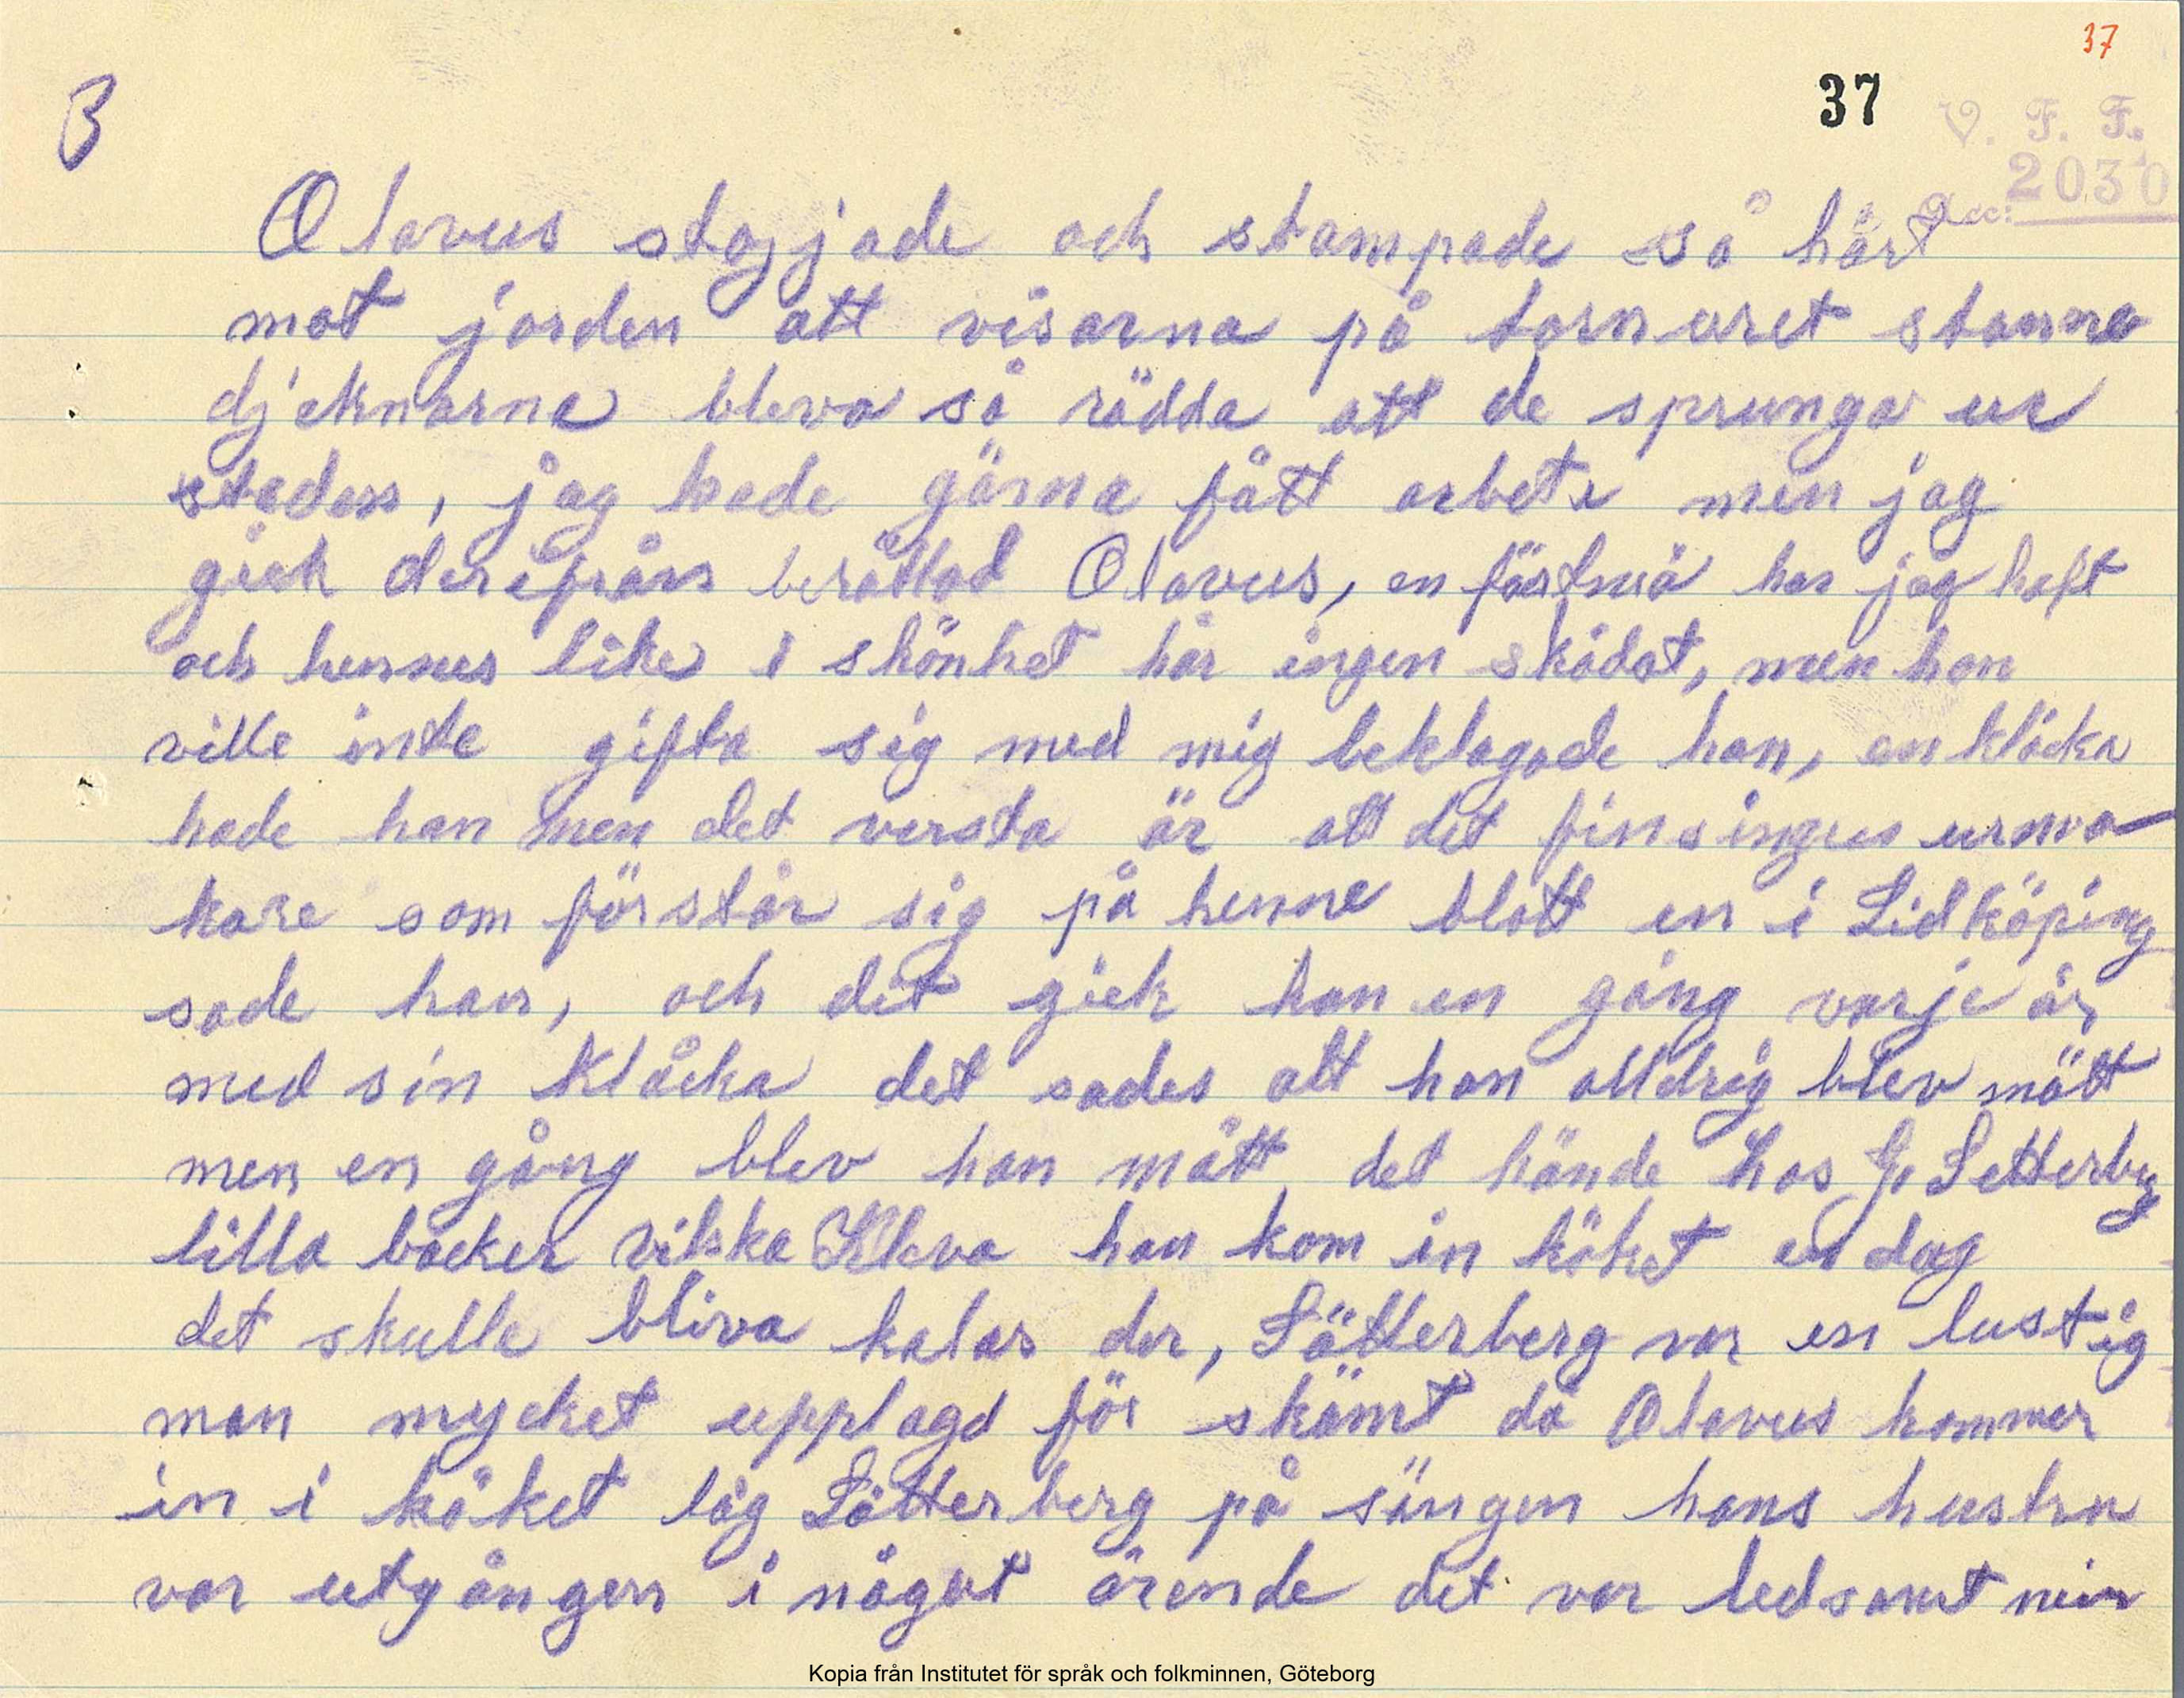 37
37
B
V. F. F.
2030
Acc:
Olavus stojjade och stampade så hårt
mot jorden att visarna på tornuret stanna
djeknarna bleva så rädda att de sprunga ur
staden, jag hade gärna fått arbete men jag
gick derifrån berättad Olavus, en fästmö har jag haft
och hennes like i skönhet har ingen skådat, men hon
ville inte gifta sig med mig beklagade han, en klåcka
hade han men det versta är att det fins ingen urma
kare som förstår sig på henne blott en i Lidköping
sade han, och dit gick han en gång varje år
med sin klåcka det sades att han alldrig blev mätt
men en gång blev han mätt det hände hos G. Setterberg
lilla backen Vilska Kleva han kom in köket en dag
det skulle bliva kalas der, Sätterberg var en lustig
man mycket upplagd för skämt då Olavus kommer
in i köket låg Sätterberg på sängen hans hustru
var utgången i något ärende det var ledsamt min
Kopia från Institutet för språk och folkminnen, Göteborg